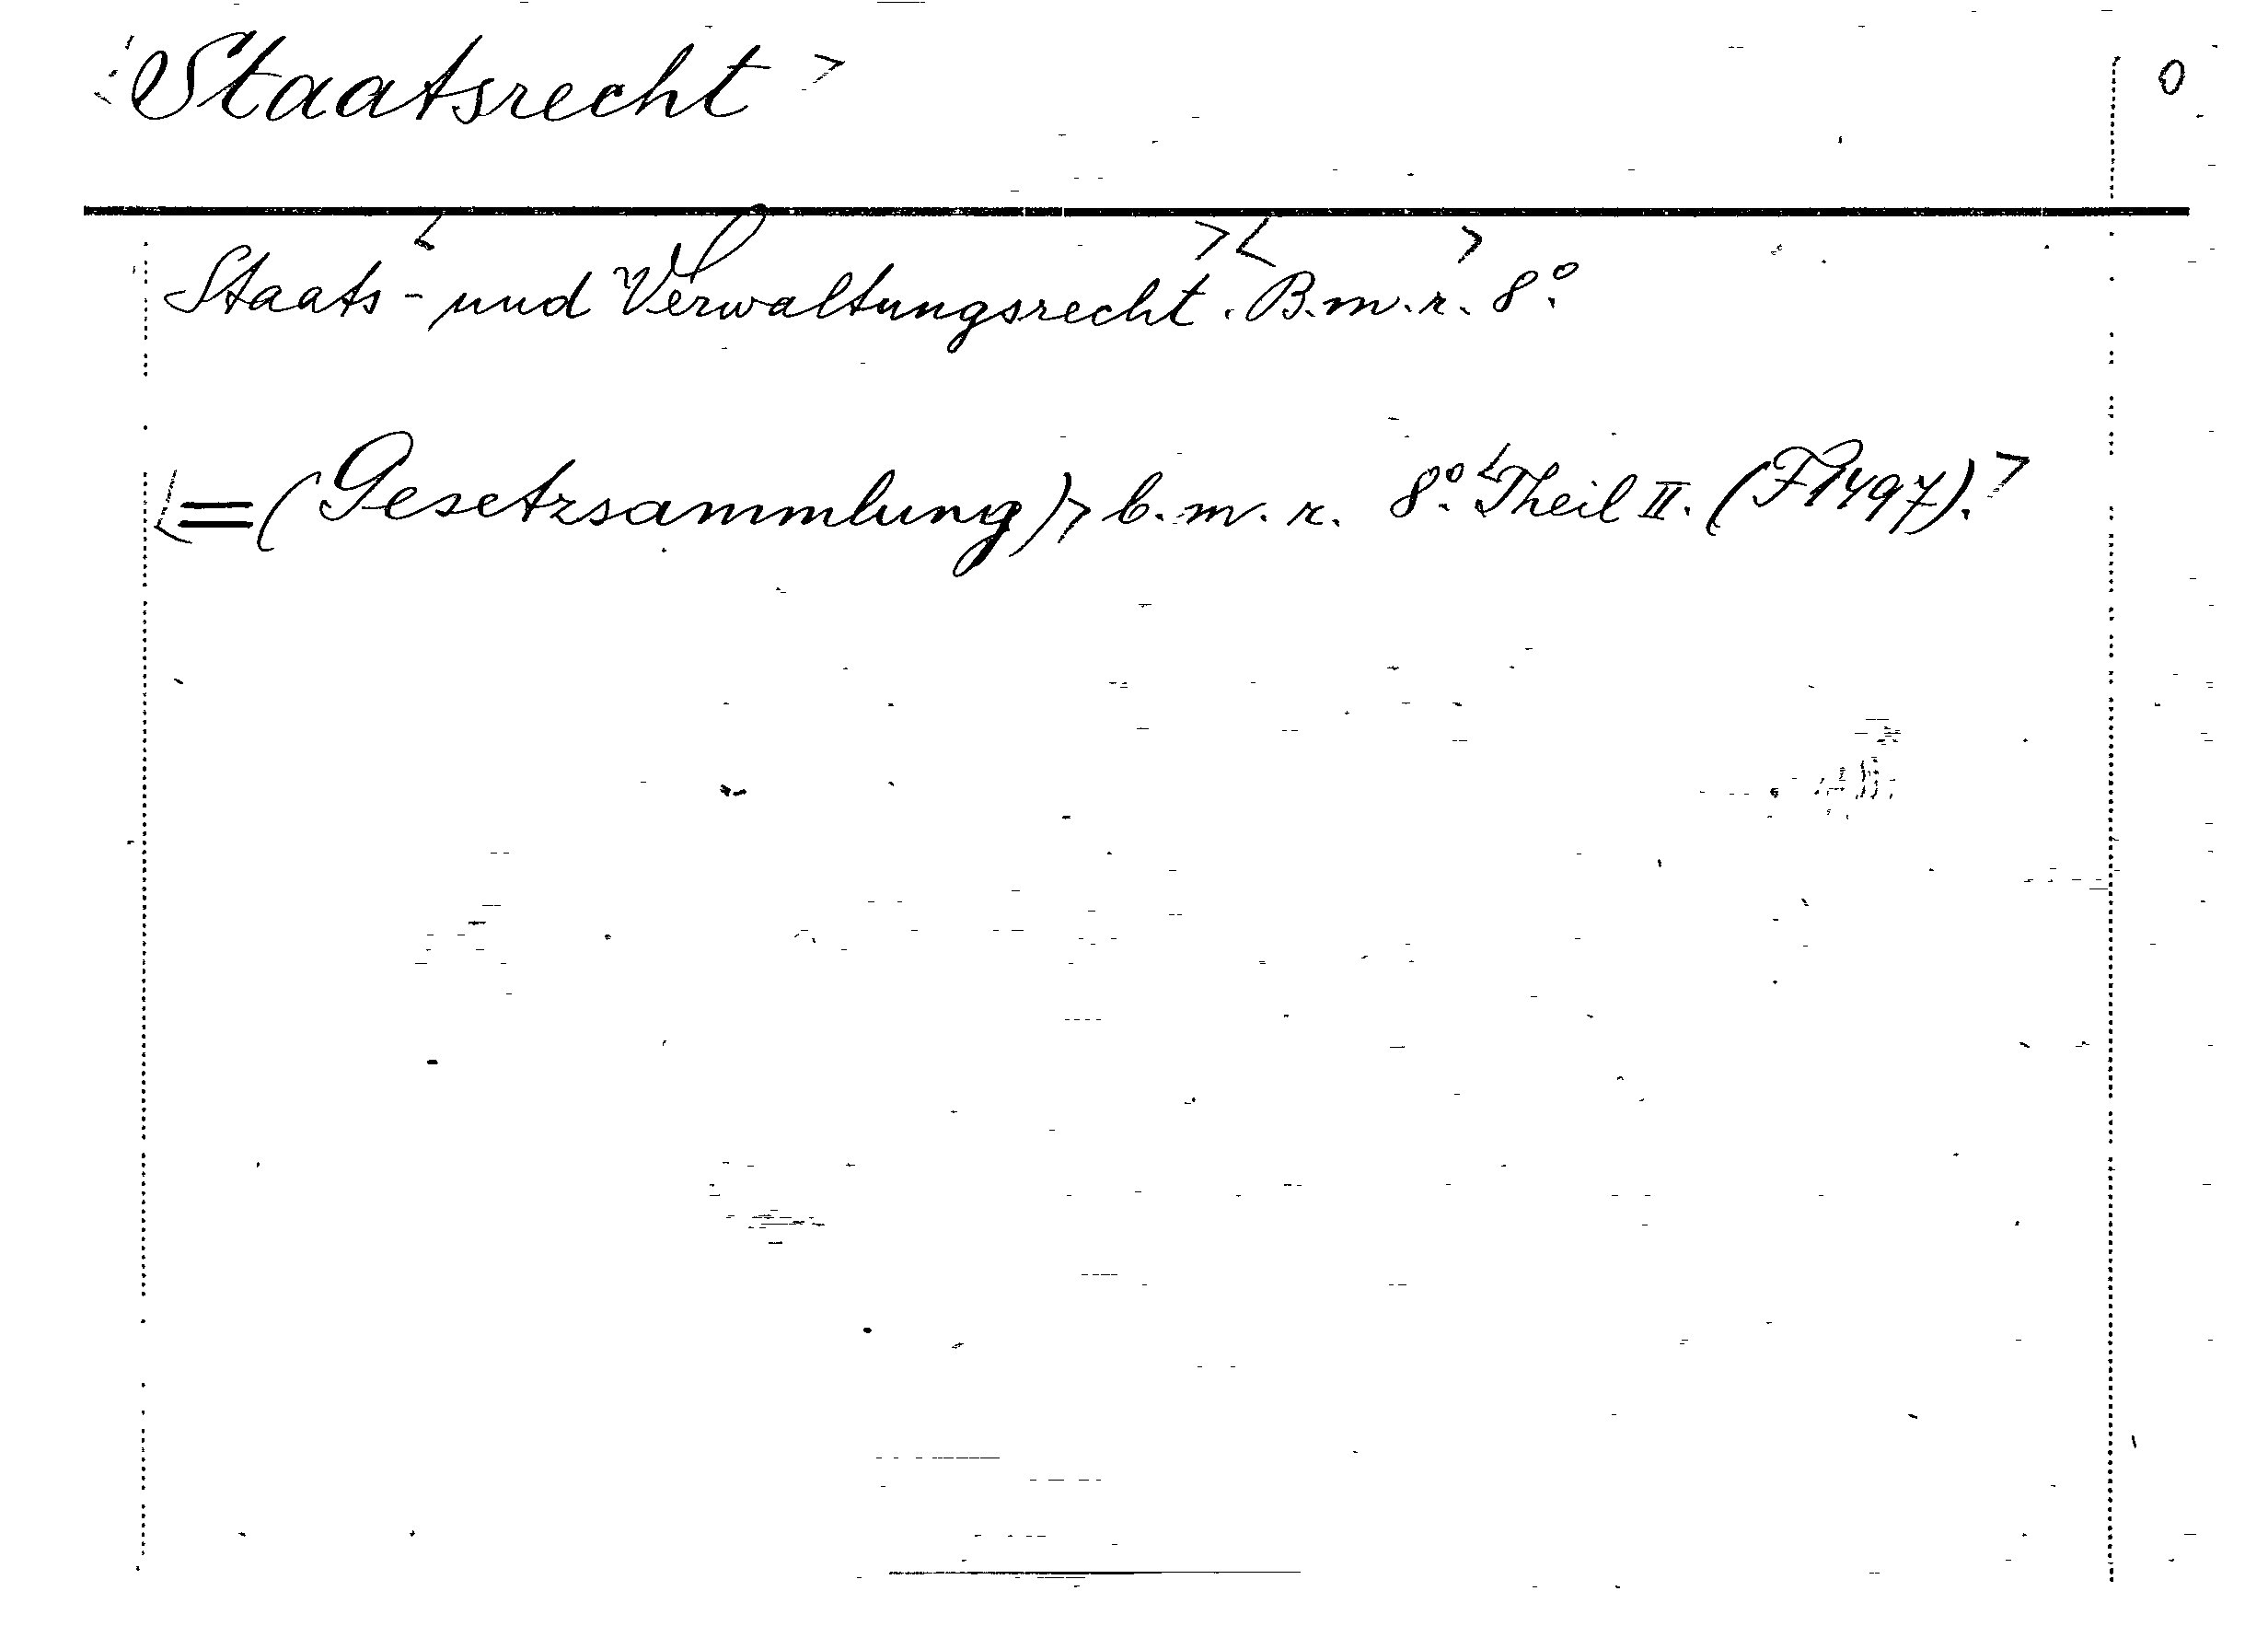 <Staatsrecht> 0
Staats-<und Verwaltungsrecht.><B.m.r.> 8º.
<=(Gesetzsammlung)> b.m.r. 8º.<Theil II. (F1497).>